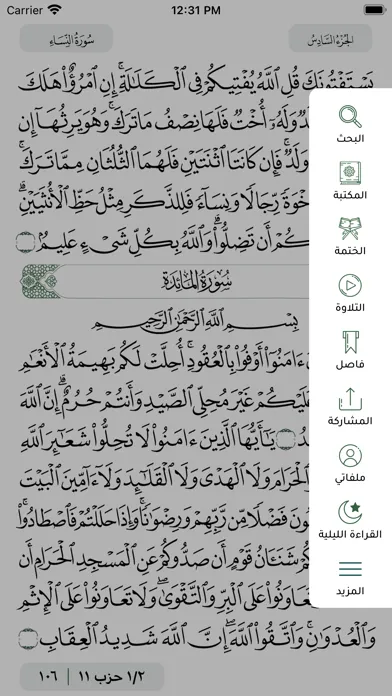 Carrier 12:31 PM
الجزء السادس
سورة النساء
يَسْتَفْتُونَكَ قُلِ ٱللَّهُ يُفْتِيكُمْ فِى ٱلْكَلَـٰلَةِ ۚ إِنِ ٱمْرُؤٌا۟ هَلَكَ
وَلَدٌ وَلَهُۥٓ أُخْتٌ فَلَهَا نِصْفُ مَا تَرَكَ ۚ وَهُوَ يَرِثُهَآ إِن
وَلَدٌ ۚ فَإِن كَانَتَا ٱثْنَتَيْنِ فَلَهُمَا ٱلثُّلُثَانِ مِمَّا تَرَكَ ۚ
إِخْوَةً رِّجَالًا وَنِسَآءً فَلِلذَّكَرِ مِثْلُ حَظِّ ٱلْأُنثَيَيْنِ ۗ
لَكُمْ أَن تَضِلُّوا۟ ۗ وَٱللَّهُ بِكُلِّ شَىْءٍ عَلِيمٌۢ
سُورَةُ المَائِدَة
بِسْمِ ٱللَّهِ ٱلرَّحْمَـٰنِ ٱلرَّحِيمِ
ءَامَنُوٓا۟ أَوْفُوا۟ بِٱلْعُقُودِ ۚ أُحِلَّتْ لَكُم بَهِيمَةُ ٱلْأَنْعَـٰمِ
عَلَيْكُمْ غَيْرَ مُحِلِّى ٱلصَّيْدِ وَأَنتُمْ حُرُمٌ ۗ إِنَّ ٱللَّهَ
يَـٰٓأَيُّهَا ٱلَّذِينَ ءَامَنُوا۟ لَا تُحِلُّوا۟ شَعَـٰٓئِرَ ٱللَّهِ
ٱلْحَرَامَ وَلَا ٱلْهَدْىَ وَلَا ٱلْقَلَـٰٓئِدَ وَلَآ ءَآمِّينَ ٱلْبَيْتَ
فَضْلًا مِّن رَّبِّهِمْ وَرِضْوَٰنًا ۚ وَإِذَا حَلَلْتُمْ فَٱصْطَادُوا۟ ۚ
شَنَـَٔانُ قَوْمٍ أَن صَدُّوكُمْ عَنِ ٱلْمَسْجِدِ ٱلْحَرَامِ أَن
وَتَعَاوَنُوا۟ عَلَى ٱلْبِرِّ وَٱلتَّقْوَىٰ ۖ وَلَا تَعَاوَنُوا۟ عَلَى ٱلْإِثْمِ
وَٱلْعُدْوَٰنِ ۚ وَٱتَّقُوا۟ ٱللَّهَ ۖ إِنَّ ٱللَّهَ شَدِيدُ ٱلْعِقَابِ
١/٢ حزب ١١ | ١٠٦
البحث
المكتبة
الختمة
التلاوة
فاصل
المشاركة
ملفاتي
القراءة الليلية
المزيد